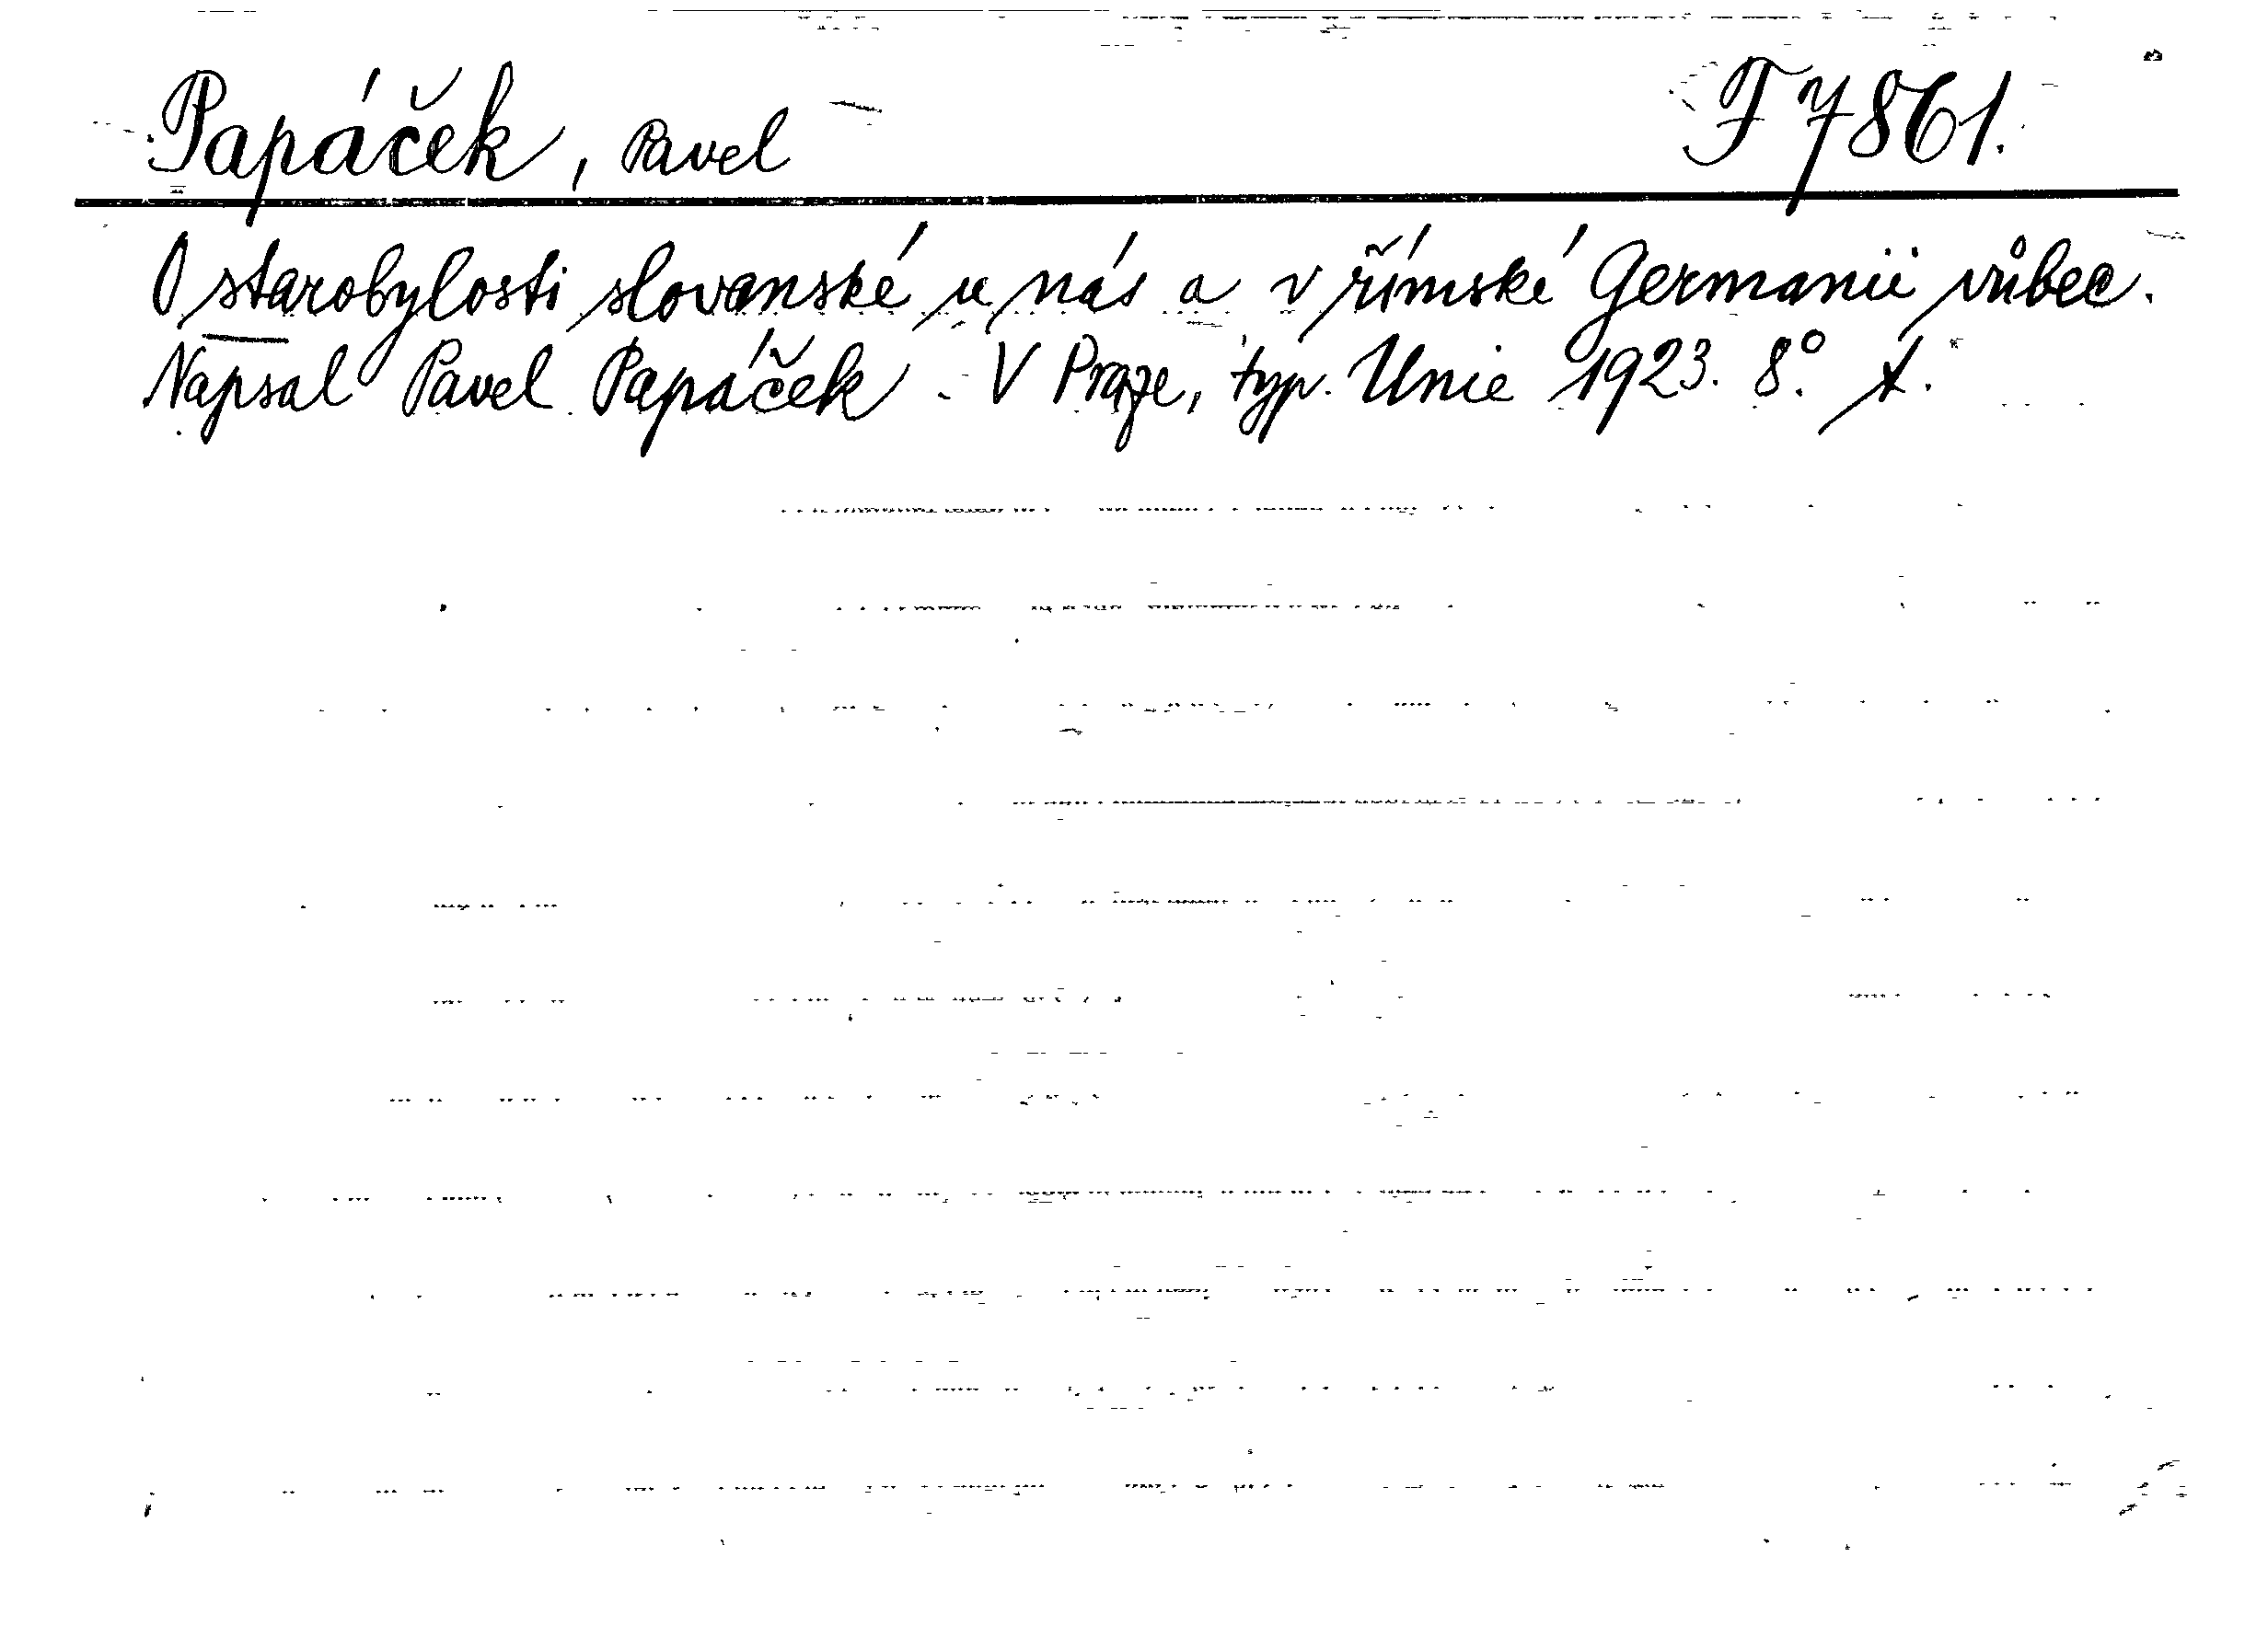 Papáček, Pavel F 7861.
O starobylosti slovanské u nás a v římské Germanii vůbec.
Napsal Pavel Papáček. V Praze, typ. Unie 1923. 8°.